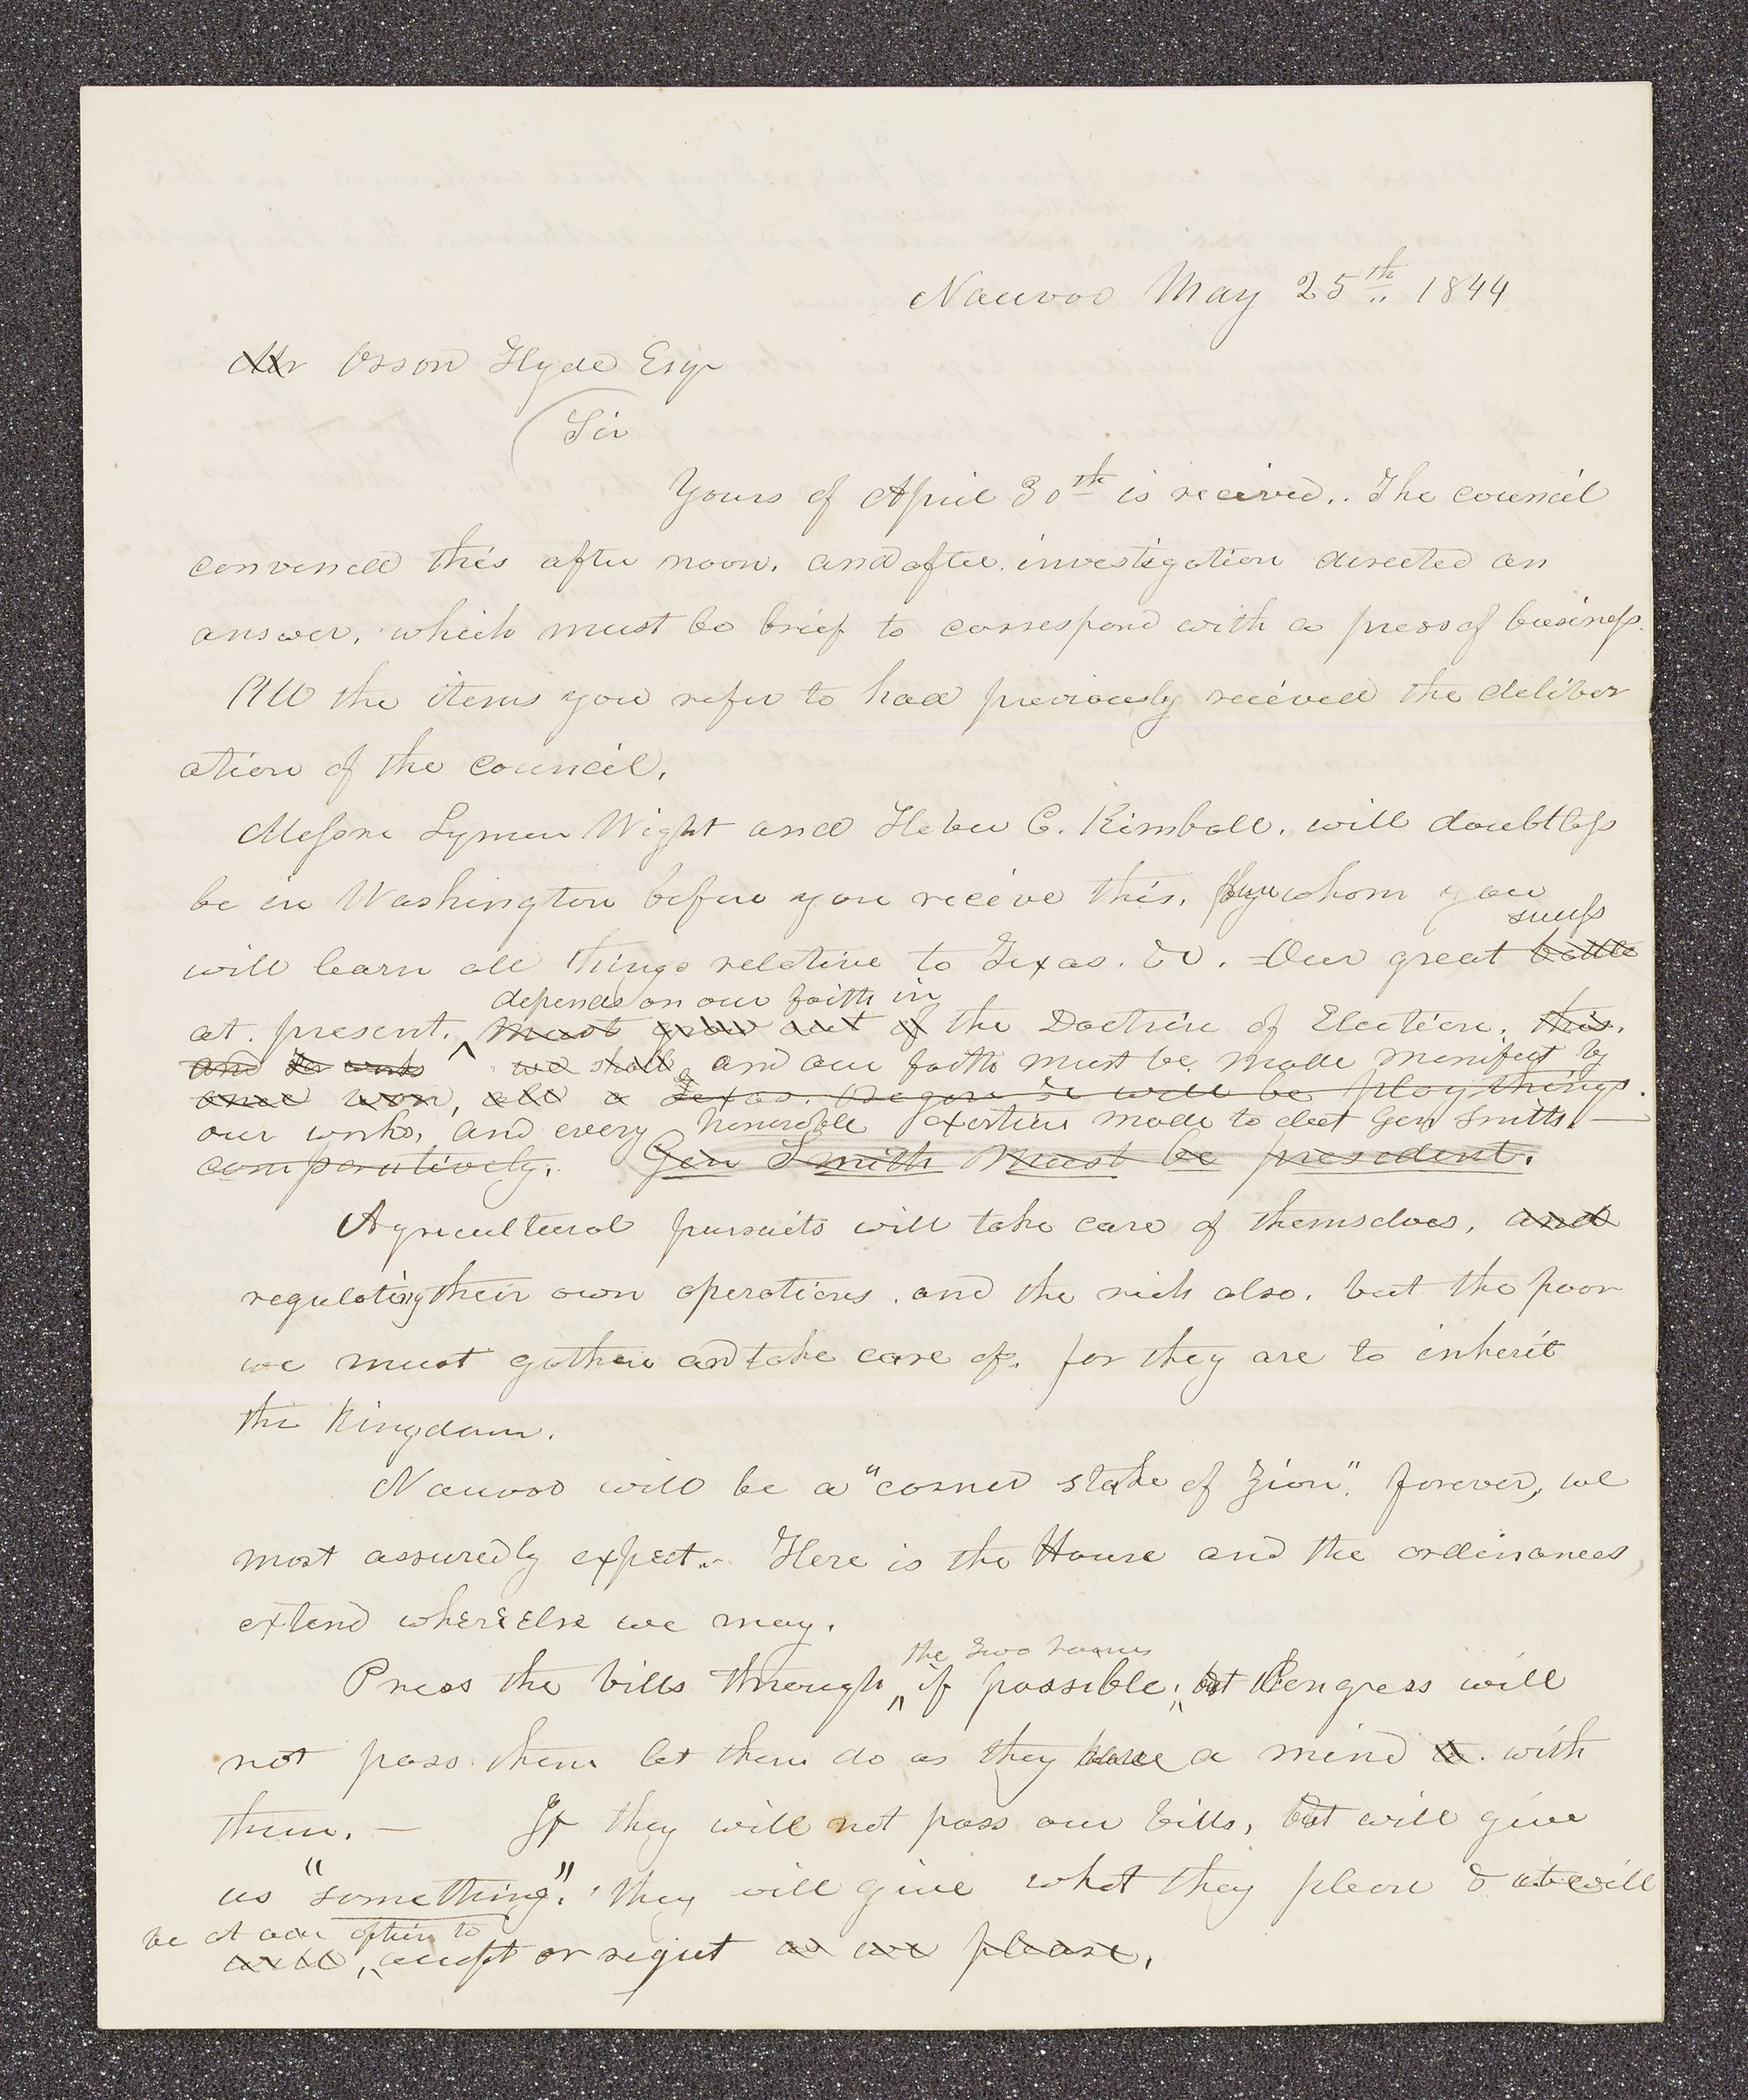 Nauvoo May 25th 1844
Mr Orson Hyde Esqr
Sir
Yours of April 30th is received,. The council
convened this after noon. and after. investigation directed an
answer, which must be brief to correspond with a press of business.
All the items you refer to had previously recieved the deliber
ation of the council.
Messrs Lyman Wight and Heber C. Kimball. will doubtless
be in Washington before you receive this, by whom you
success
will learn all things relative to Texas. &c. Our great battle
depends on our faith in
at present, must grow out of the Doctrine of Election, this.
and the works we shall, and our faith must be made manifest by
once won, all a Texas. Oregon &c will be play things.
our works, and every honorable exertion made to elect Gen Smith. —
comparatively. Gen Smith Must be president.
Agricultural pursuits will take care of themselves, and
regulating their own operations. and the rich also. but the poor
we must gather and take care of. for they are to inherit
the Kingdom.
Nauvoo will be a "corner stake of Zion". forever, we
most assuredly expect.- Here is the House and the ordinances,
extend where else we may.
the two houses
Press the bills through ^ if possible; Congress will
not pass them let them do as they have a mind to. with
them. — If they will not pass our bills, but will give
us "something", they will give what they please & it will
be at our option to
will, ^ accept or reject as we please.